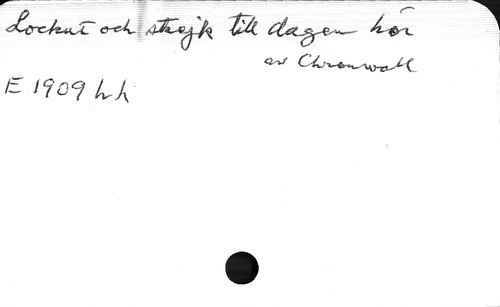 Lockut och strejk till dagen hör
av Chronwall
E 1909 h h